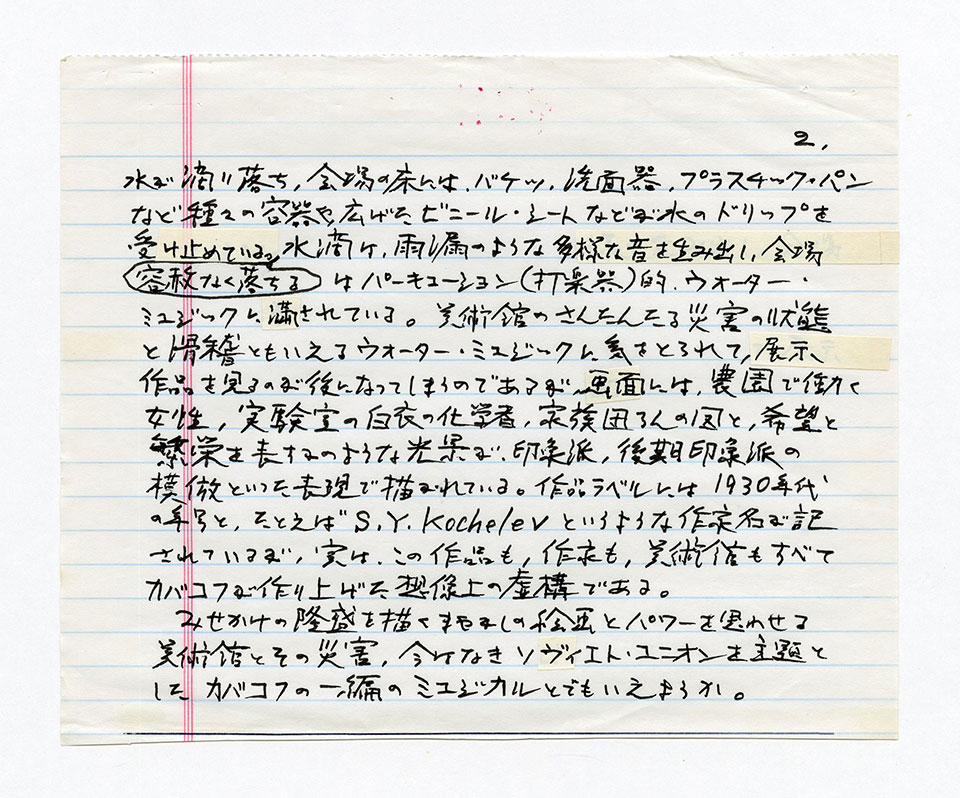 2.
水が滴り落ち,会場の床には,バケツ,洗面器,プラスチック・パン
など種々の容器や広げたビニール・シートなどが水のドリップを
受け止めている。水滴は,雨漏のような多様な音を生み出し,会場
容赦なく落ちる はパーキューション(打楽器)的,ウォーター・
ミュジックに満されている。美術館のさんたんたる災害の状態
と滑稽ともいえるウォーター・ミュジックに気をとられて,展示
作品を見るのが後になってしまうのであるが 画面には,農園で働く
女性,実験室の白衣の化学者,家族団らんの図と,希望と
繁栄を表すかのような光景が,印象派,後期印象派の
模倣といった表現で描かれている。作品ラベルには1930年代
の年号と,たとえば S.Y. Kochelev というような作家名が記
されているが,実は,この作品も,作家も,美術館もすべて
カバコフが作り上げた想像上の虚構である。
みせかけの隆盛を描くまやかしの絵画とパワーを思わせる
美術館とその災害,今はなきソヴィエト・ユニオンを主題と
した カバコフの一編のミュジカルとでもいえようか。